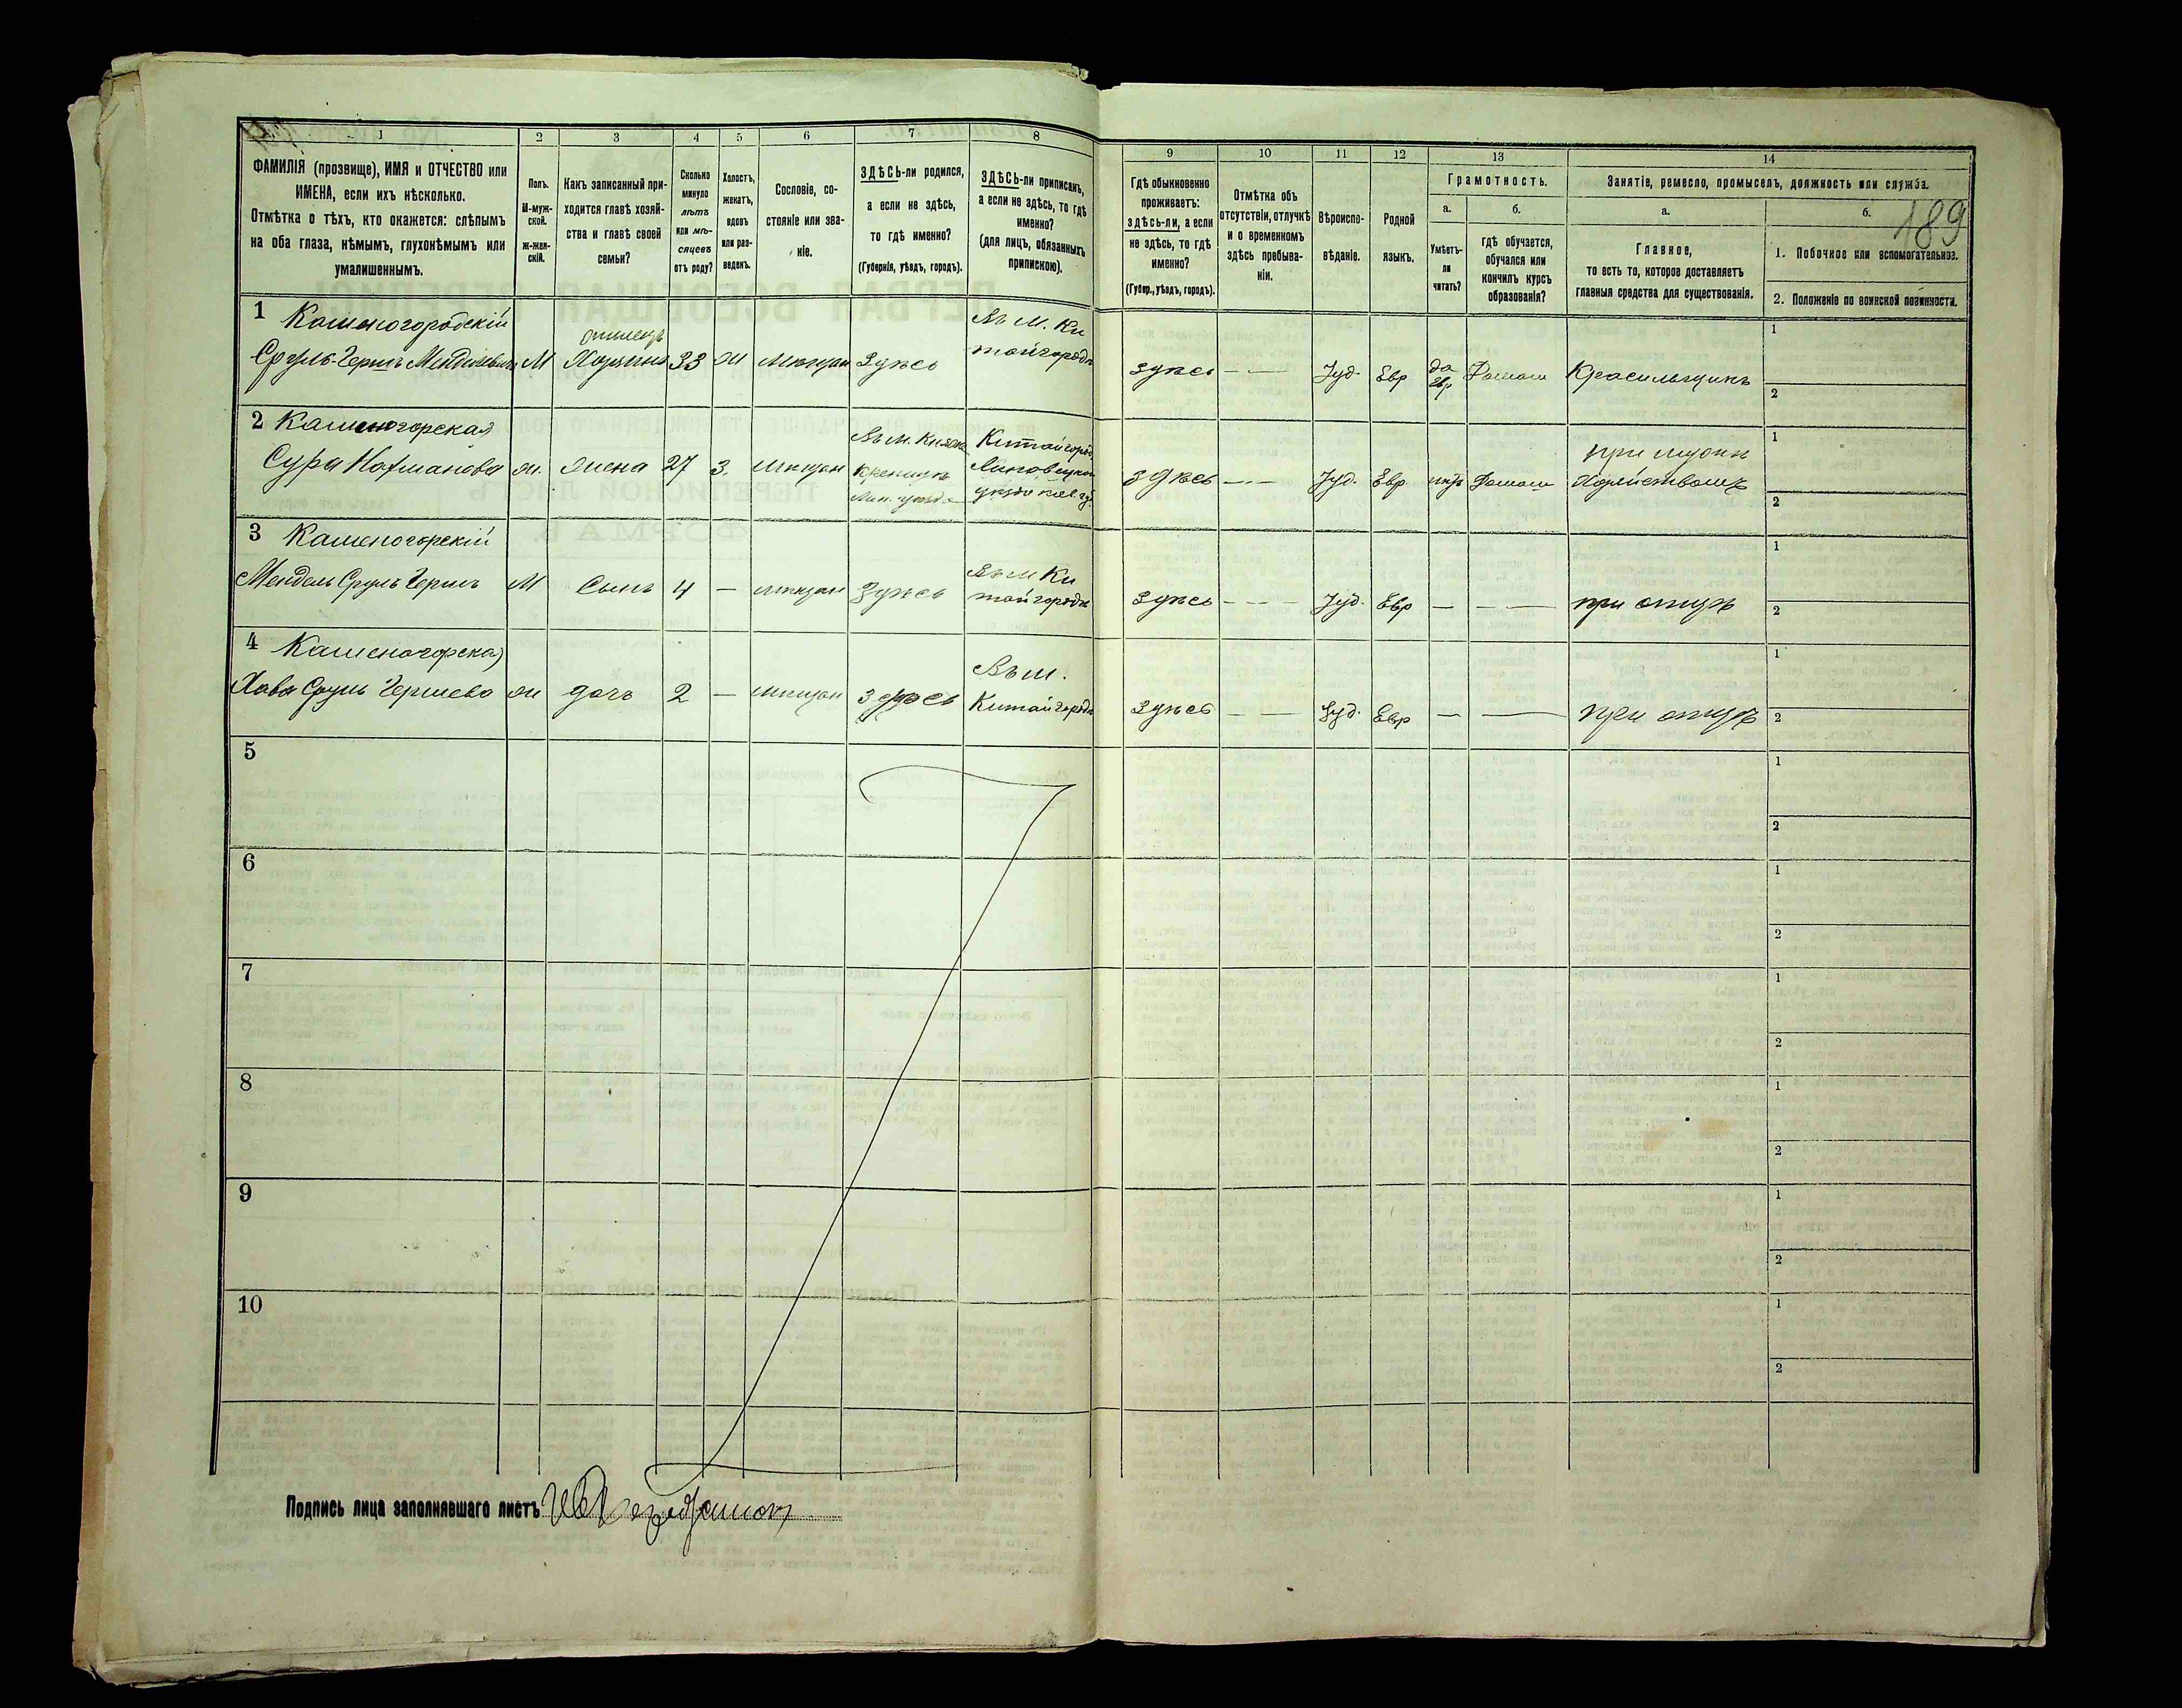 1
2
3
4
5
6
7
8
ФАМИЛІЯ (прозвище), ИМЯ и ОТЧЕСТВО или
ИМЕНА, если ихъ нѣсколько.
Отмѣтка о тѣхъ, кто окажется: слѣпымъ
на оба глаза, нѣмымъ, глухонѣмымъ или
умалишеннымъ.
Полъ.
М-муж-
ской.
ж-жен-
скій.
Какъ записанный при-
ходится главѣ хозяй-
ства и главѣ своей
семьи?
Сколько
минуло
лѣтъ
или мѣ-
сяцевъ
отъ роду?
Холостъ,
женатъ,
вдовъ
или раз-
веденъ.
Сословіе, со-
стояніе или зва-
ніе.
ЗДѢСЬ-ли родился,
а если не здѣсь,
то гдѣ именно?
(Губернія, уѣздъ, городъ).
ЗДѢСЬ-ли приписанъ,
а если не здѣсь, то гдѣ
именно?
(для лицъ, обязанныхъ
припискою).
9
10
11
12
13
14
Гдѣ обыкновенно
проживаетъ:
здѣсь-ли, а если
не здѣсь, то гдѣ
именно?
(Губер., уѣздъ, городъ).
Отмѣтка объ
отсутствіи, отлучкѣ
и о временномъ
здѣсь пребыва-
ніи.
Вѣроиспо-
вѣданіе.
Родной
языкъ.
Грамотность.
а.
б.
Умѣетъ-
ли
читать?
гдѣ обучается,
обучался или
кончилъ курсъ
образованія?
Занятіе, ремесло, промыселъ, должность или служба.
а.
б.
189
Главное,
то есть то, которое доставляетъ
главныя средства для существованія.
1. Побочное или вспомогательное.
2. Положеніе по воинской повинности.
1 Каменогородскій
Сруль-Гершъ Менделевичъ М Хозяинъ 33 ж мѣщан Здѣсь
Въ м. Ки
тайгородѣ
здѣсь — — Іуд. Евр да
Евр Домаш Красильщикъ
1
2
2 Каменогорская
Сура Нахманова ж. жена 27 з. мѣщан
Въ м. Княже
Китайгородѣ
Липовецкого
здѣсь — — Іуд. Евр нѣтъ Домаш
при мужѣ
Хозяйствомъ
1
2
3 Каменогорскій
Мендель Сруль Гершъ М Сынъ 4 — мѣщан Здѣсь
Въ м Ки
тайгородѣ
здѣсь — — Іуд. Евр — — — при отцѣ
1
2
4 Каменогорская
Хава Сруль Гершева ж дочь 2 — мѣщан Здѣсь
Въ м.
Китайгородѣ
здѣсь — — Іуд. Евр — — при отцѣ
1
2
5
1
2
6
1
2
7
1
2
8
1
2
9
1
2
10
1
2
Подпись лица заполнявшаго листъ